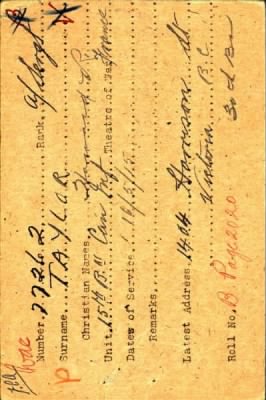 Number. 27262 Rank. A/Sergt
Surname. TAYLOR
Christian Names. Haywood
Unit. 15th Bn Can Inf Theatre of War France
Dates of Service.
Remarks.
Latest Address. 1404 Harrison St
Victoria B.C.
Roll No. B Page 2020